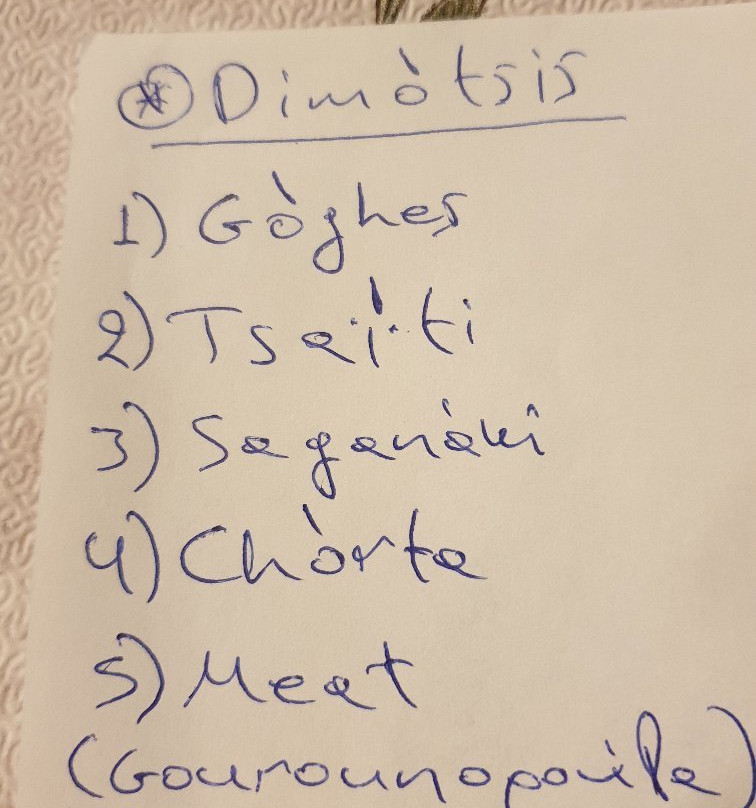 * Dimòtsis
1) Gòghes
2) Tsaḯti
3) Saganàki
4) Chòrta
5) Meat
(Gourounopoùla)